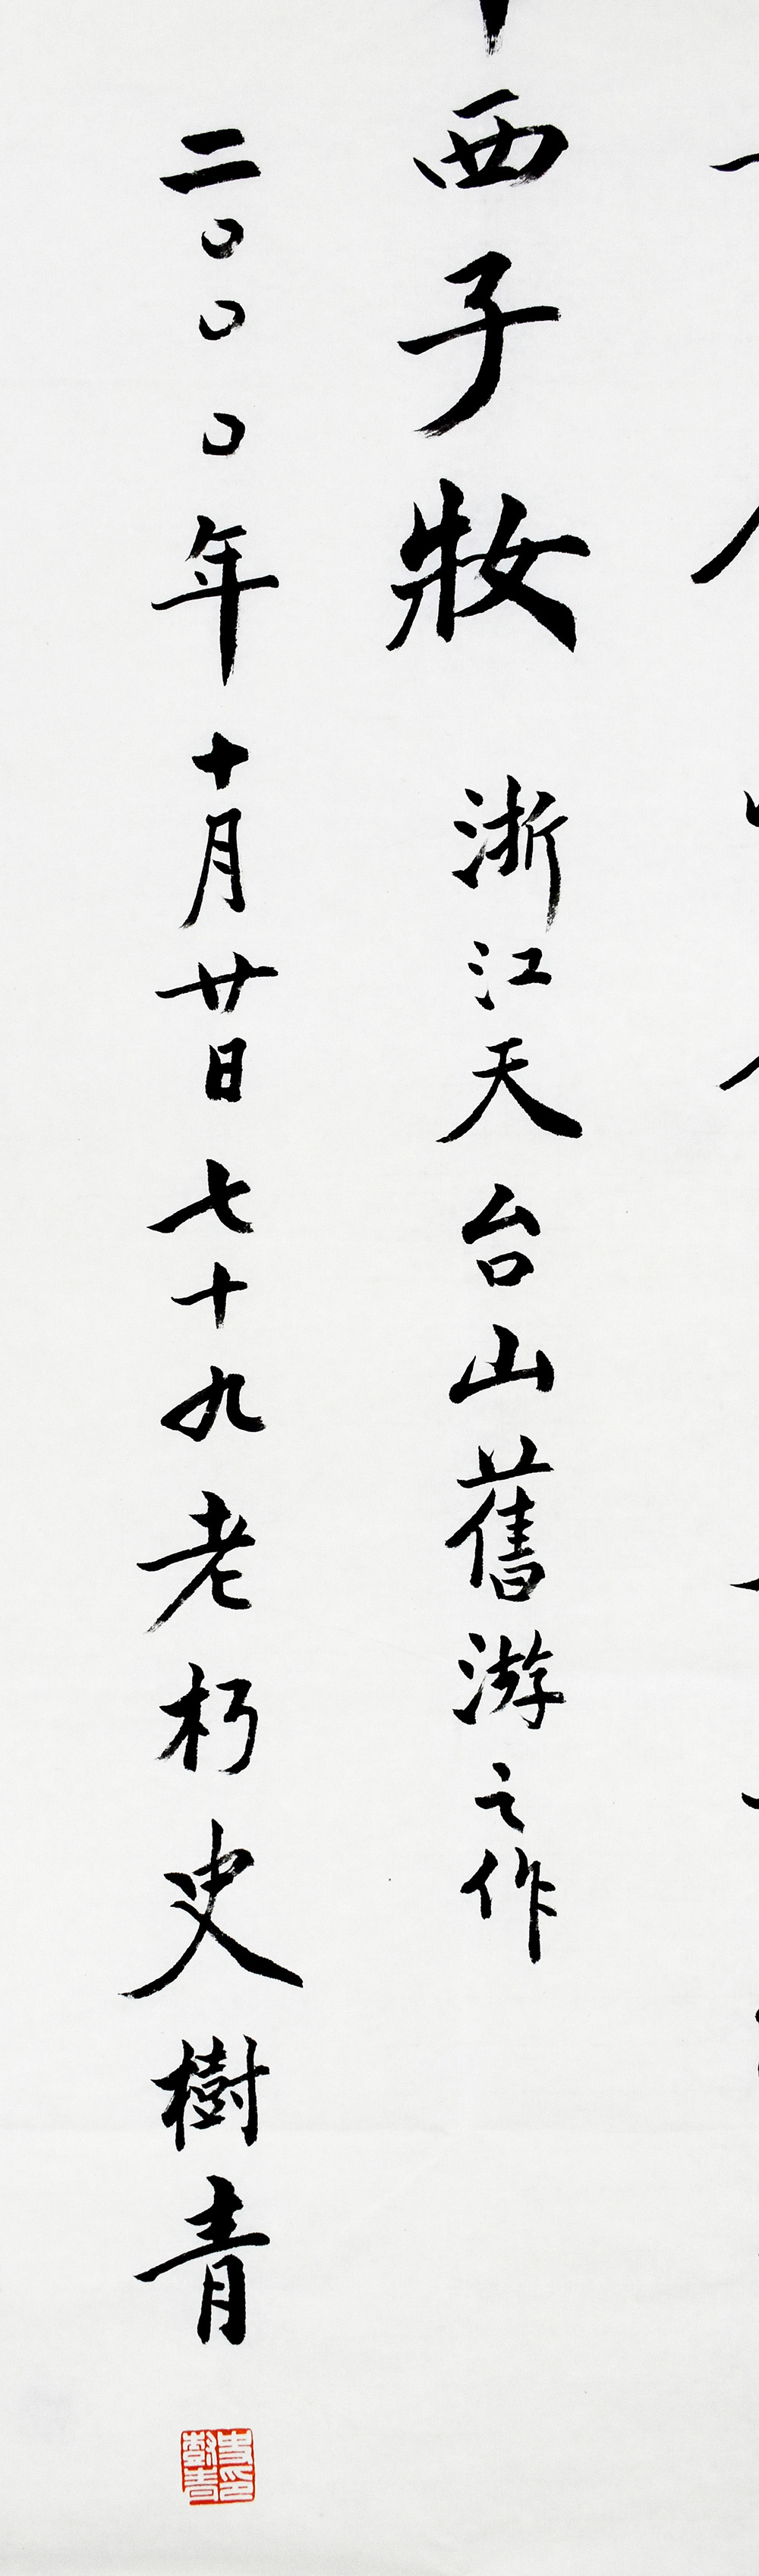 西子妝 浙江天台山舊游之作
二〇〇〇年十月廿日七十九老朽史樹青
史樹青印